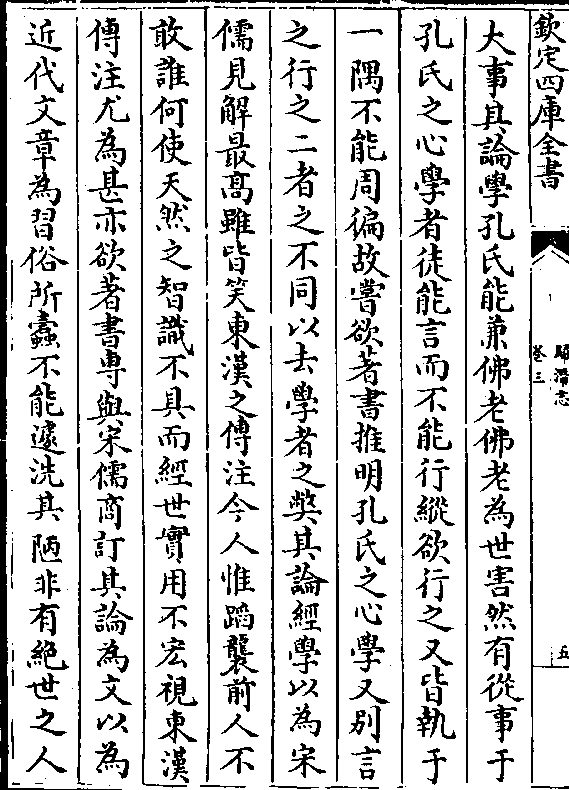 欽定四庫全書
歸潛志
卷三
五
大事其論學孔氏能兼佛老佛老為世害然有從事于
孔氏之心學者徒能言而不能行縱欲行之又皆執于
一隅不能周徧故嘗欲著書推明孔氏之心學又別言
之行之二者之不同以去學者之弊其論經學以為宋
儒見解最髙雖皆笑東漢之傳注今人惟蹈襲前人不
敢誰何使天然之智識不具而經世實用不宏視東漢
傳注尤為甚亦欲著書專與宋儒商訂其論為文以為
近代文章為習俗所蠹不能遽洗其陋非有絕世之人